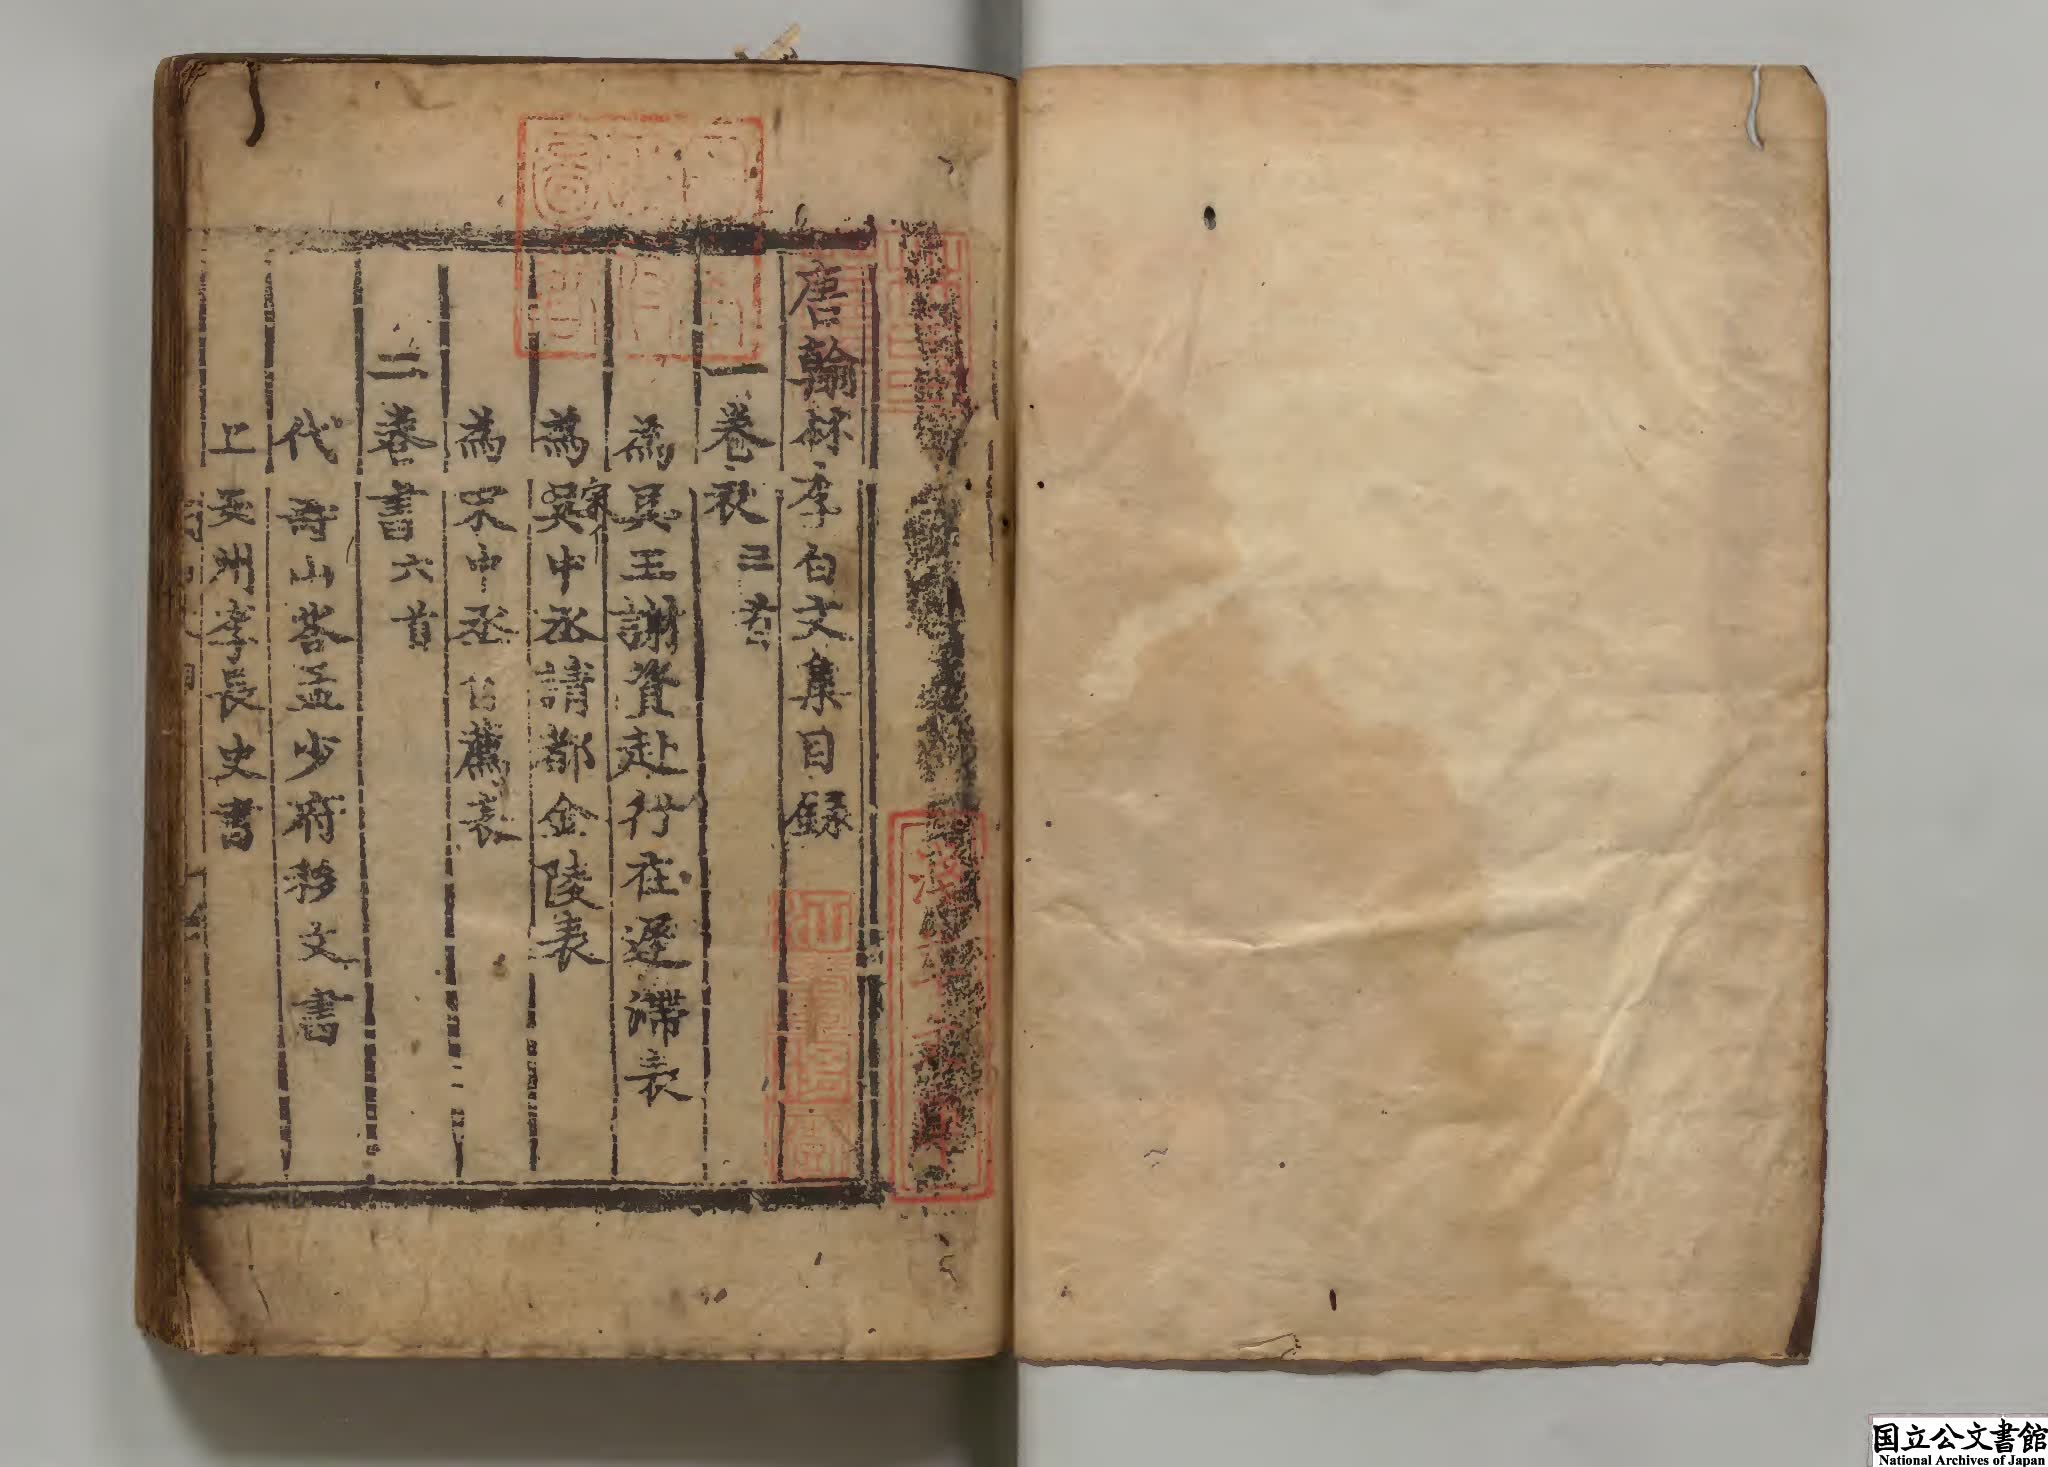 唐翰林李白文集目録
一卷表三首
為吴王謝責赴行在遲滯表
為吴中丞請都金陵表
宋
為宋中丞自薦表
二卷書六首
代壽山答孟少府移文書
上安州李長史書
淺草文庫
国立公文書館
National Archives of Japan